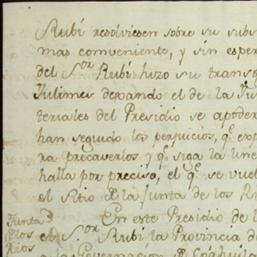 Rubi resolviesen sobre su subs
mas conveniente, y sin esper
del Sor Rubi hizo su transm
Julimes dexando el de la Ju
teriales del Presidio se apoder
han seguido los perjuicios, qe expe
ra precaverlos, y qe siga la line
halla por preciso, el qe se vuel
el Sitio de la Junta de los R
Junta
de los
Rios
En este Presidio de l
el Sor Rubi la Provincia d
la Governacion de Coahuila